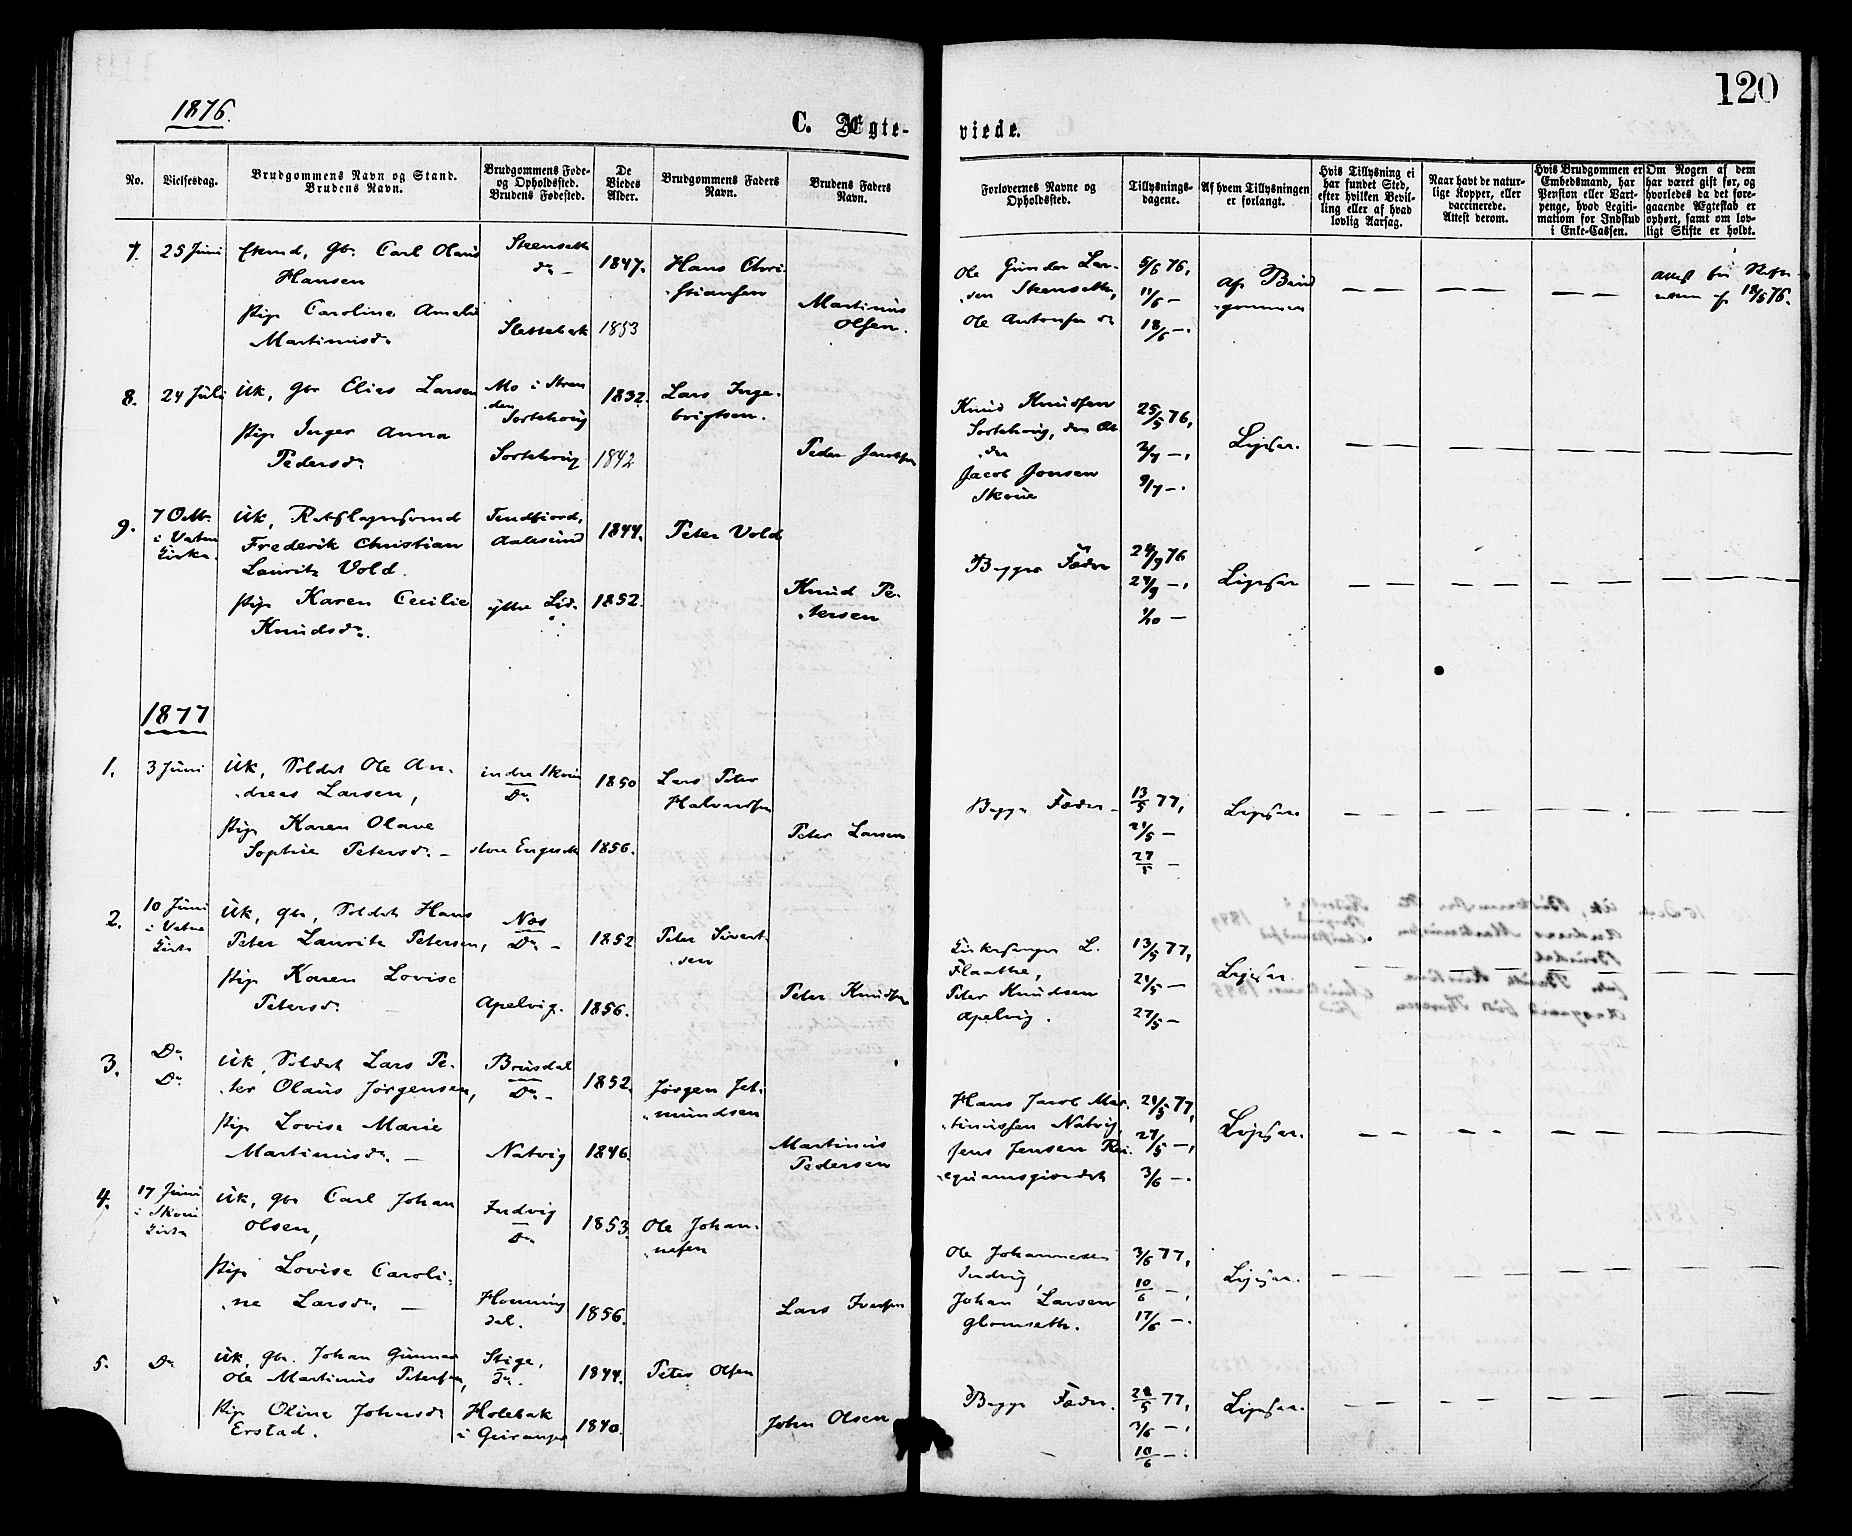 120
1876.
C. Ægte-
viede.
No.
Vielsesdag.
Brudgommens Navn og Stand.
Brudens Navn.
Brudgommens Føde-
og Opholdssted.
Brudens Fødested.
De
Viedes
Alder.
Brudgommens Faders
Navn.
Brudens Faders
Navn.
Forlovernes Navne og
Opholdssted.
Tillysnings-
dagene.
Af hvem Tillysningen
er forlangt.
Hvis Tillysning ei
har fundet Sted,
efter hvilken Bevil-
ling eller af hvad
lovlig Aarsag.
Naar havt de natur-
lige Kopper, eller
vaccinerede.
Attest derom.
Hvis Brudgommen er
Embedsmand, har
Pension eller Vart-
penge, hvad Legiti-
mation for Indskud
i Enke-Cassen.
Om Nogen af dem
har været gift før, og
hvorledes da det fore-
gaaende Ægteskab er
ophørt, samt om lov-
ligt Skifte er holdt.
7.
25 Juni
Gbr. Carl Olaus
Hansen
Pige Caroline Amalie
Martinusdr
Skensæth
Dr. —
Slettebak
1847.
1853
Hans Chri-
stiansen
Martinus
Olsen.
Ole Gunder Lar-
sen Skensæth,
Ole Antonsen Dr
5/6 76,
11/6 —
18/6 —.
Af Brud
gommen
— — — — — —
18/6 76.
8.
24 Juli
Uk, Gbr Elias Larsen
Pige Inger Anna
Pedersdr
Mo i Stran
den
Sortehoug
Sortehoug
1832.
1842
Lars Inge-
brigtsen.
Peder Jacobsen
Knud Knudsen
Sortehoug,
Jacob Jonsen
Skoue
25/5 76,
2/7 —,
9/7 —.
Ligesaa.
— — — — — — — —
9.
7 Octbr.
i Vatne
Kirke.
Uk,
Frederik Christian
Lauritz Vold.
Pige Karen Cecilie
Knudsdr.
Tendfjord,
Aalesund
ytre Lid.
1844.
1852.
Peter Vold
Knud Pe-
tersen
Begges Fædre
24/9 —,
1/10 —
Ligesaa
— — — — — — — —
1877
1.
3 Juni
Uk, Soldat Ole An-
dreas Larsen,
Pige Karen Olave
Sophie Petersdr. —
indre Skoue
Dr.
store Engeseth
1850
1856.
Lars Peter
Halvardsen
Peter Larsen
Begges Fædre —
13/5 77,
21/5 —
27/5 —
Ligesaa.
— — — — — — — —
2.
10 Juni
i Vatne
Kirke
Uk, gbr, Soldat Hans
Peter Lauritz Petersen,
Pige Karen Lovise
Petersdr. —
Næs
Dr. —
Apelvig.
1852
1856.
Peter Sivert-
sen
Peter Knudsen
Kirkesanger L.
Flaathe,
Peter Knudsen
Apelvig.
13/5 77,
21/5 —
27/5 —
Ligesaa.
— — — — — — — —
3.
Dr.
Dr.
Uk, Soldat Lars Pe-
ter Olaus Jørgensen,
Pige Lovise Marie
Martinusdr. —
Brusdal
Dr. —
Natvig
1852.
1846.
Jørgen Jet-
mundsen
Martinus
Pedersen
Hans Jacob Mar-
tinussen Natvig,
Jens Jensen Rei-
21/5 77,
27/5 —,
3/6 —.
Ligesaa.
— — — — — — — —
4.
17 Juni
i Skoue
Kirke
Uk, gbr Carl Johan
Olsen,
Pige Lovise Caroli-
ne Larsdr. —
Indvig
Dr
Hornning
dal.
1853
1856.
Ole Johan-
nesen
Lars Iversen
Ole Johannesen
Indvig,
Johan Larsen
Glomsæth.
3/6 77,
10/6 —,
17/6 —.
Ligesaa.
— — — — — — — —
5.
Dr.
Uk, gbr. Johan Gunner
Ole Martinus Petersen,
Pige Oline Johnsdr
Erstad.
Stige,
Dr.
Holebak
i Geiranger
1844.
1840.
Peter Olsen
John Olsen
Begges Fædre.
28/5 77,
3/6 —,
10/6 —.
Ligesaa.
— — — — — — — —